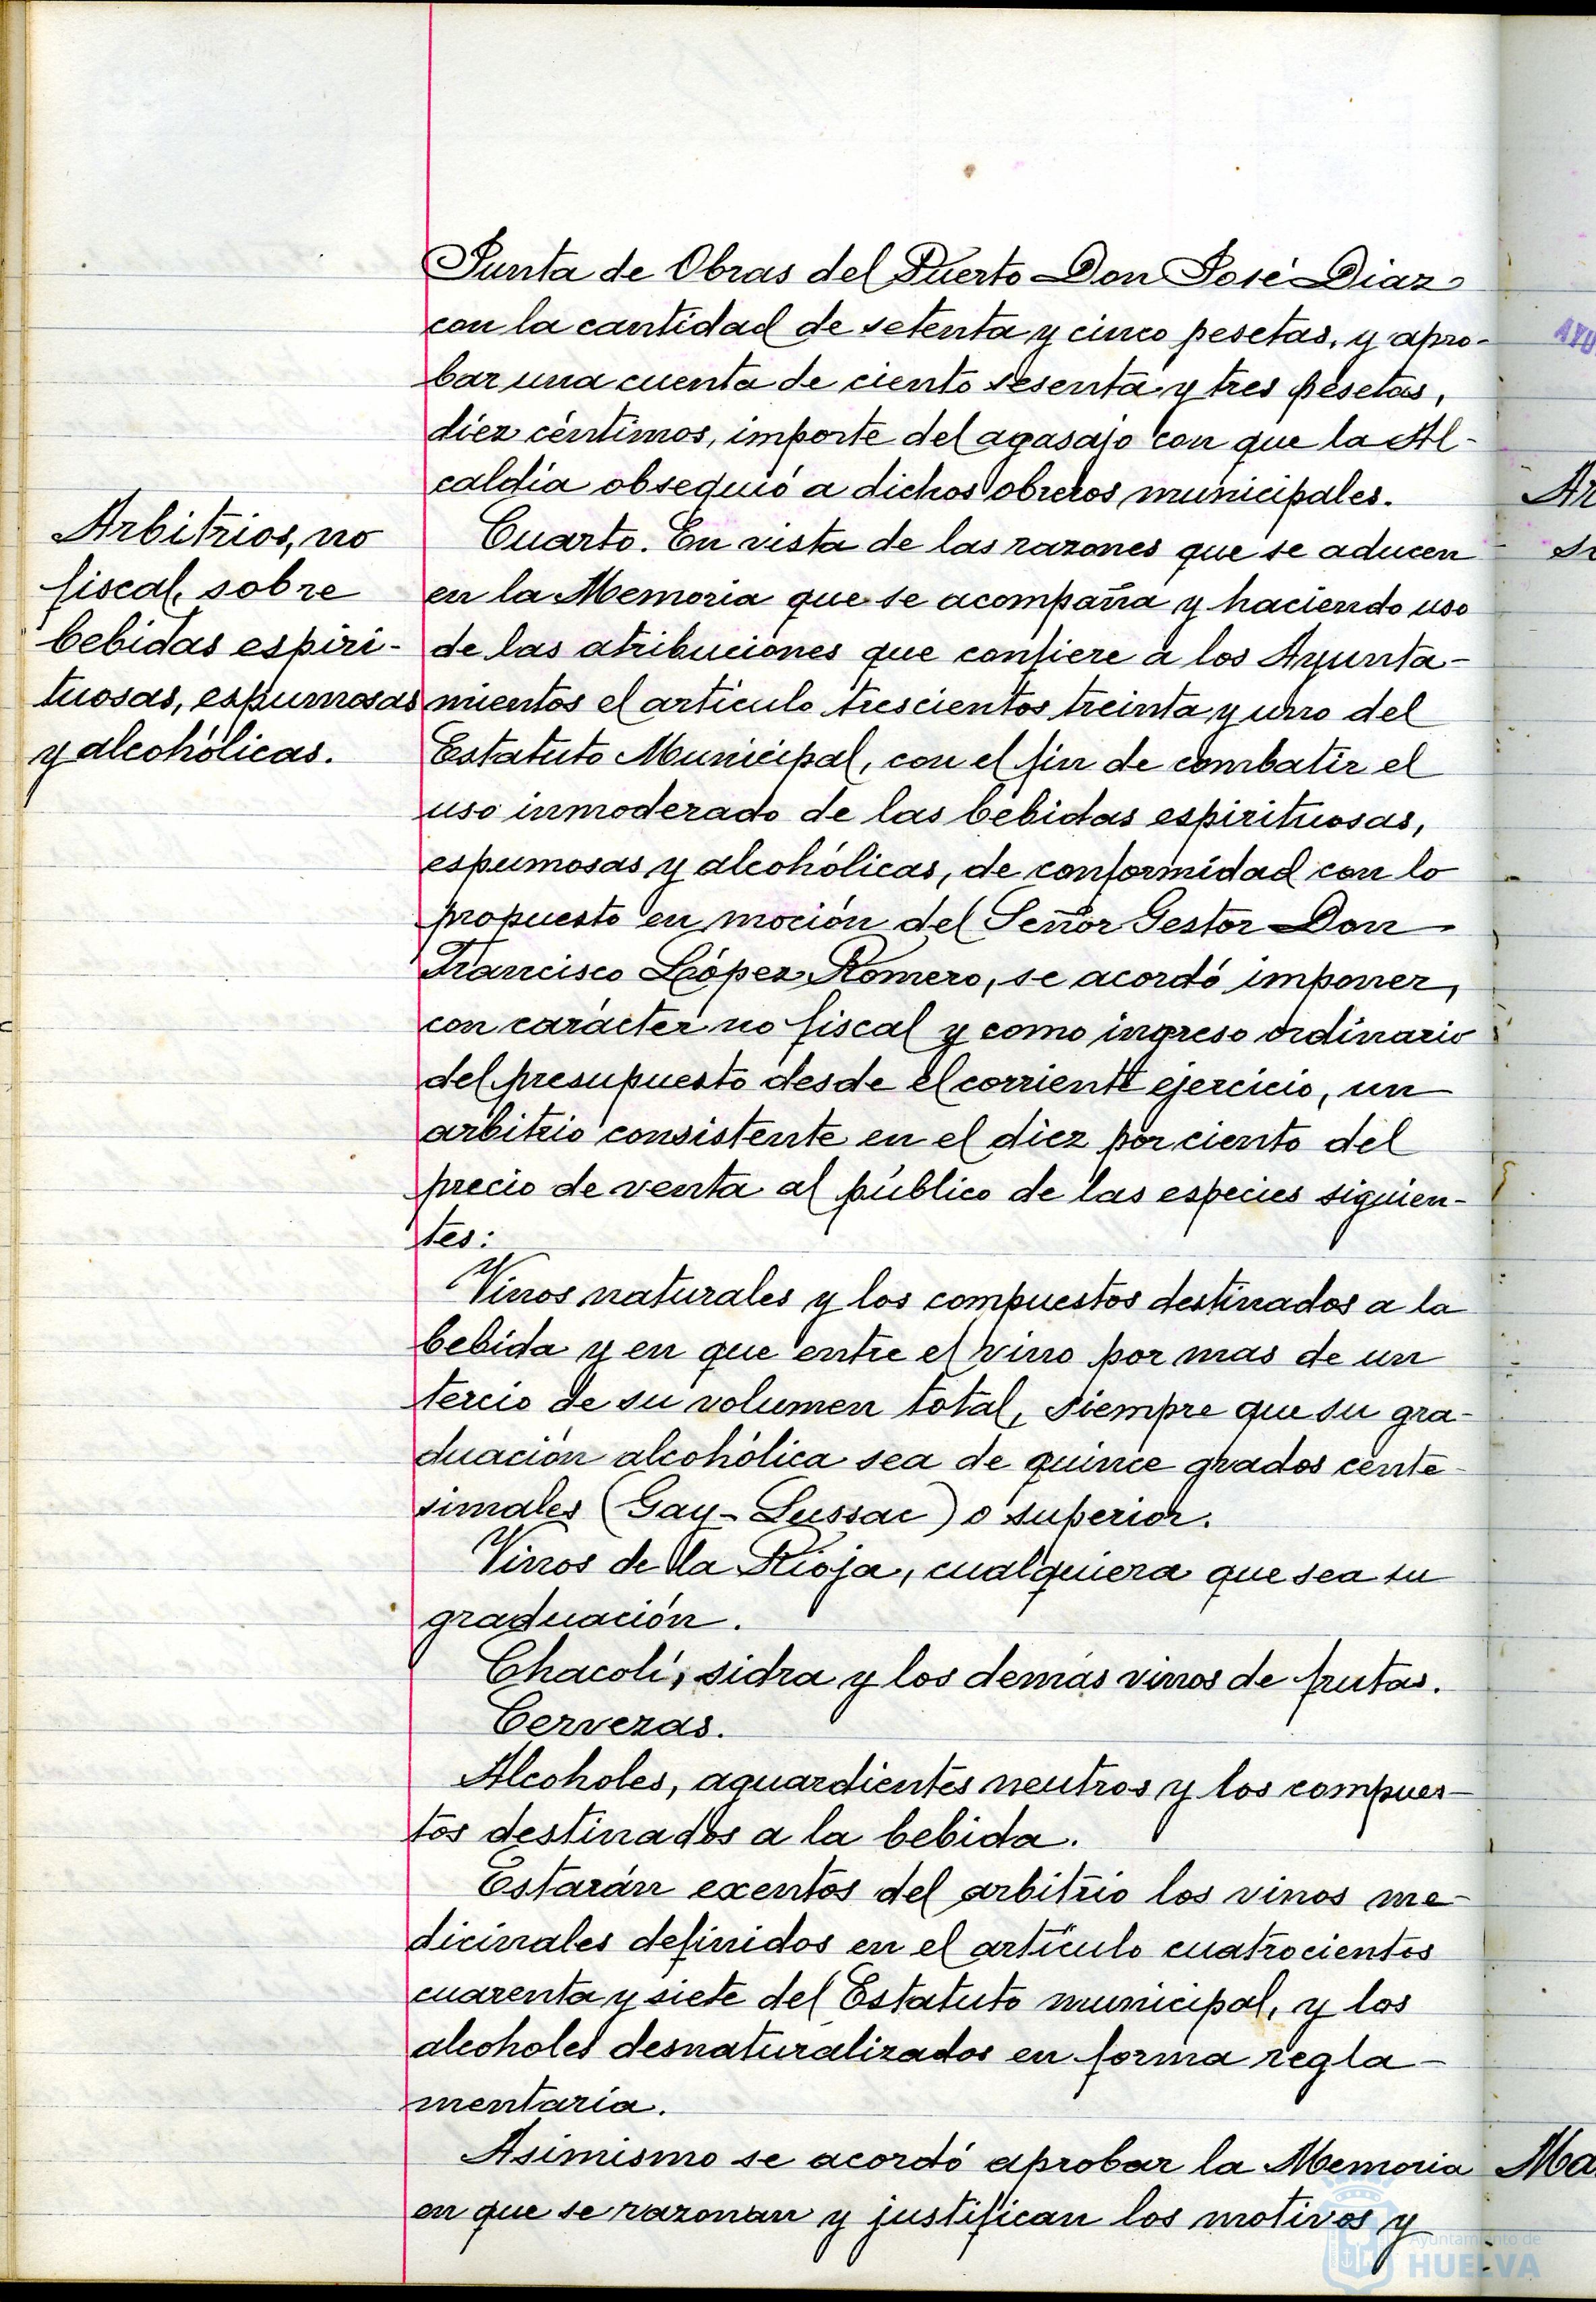 Junta de Obras del Puerto Don José Diaz
con la cantidad de setenta y cinco pesetas, y apro-
bar una cuenta de ciento sesenta y tres pesetas,
diez céntimos, importe del agasajo con que la Al-
caldía obsequió a dichos obreros municipales.
Arbitrios, no
fiscal, sobre
bebidas espiri-
tuosas, espumosas
y alcohólicas.
Cuarto. En vista de las razones que se aducen
en la Memoria que se acompaña y haciendo uso
de las atribuciones que confiere a los Ayunta-
mientos el artículo trescientos treinta y uno del
Estatuto Municipal, con el fin de combatir el
uso inmoderado de las bebidas espirituosas,
espumosas y alcohólicas, de conformidad con lo
propuesto en moción del Señor Gestor Don
Francisco López Romero, se acordó imponer,
con carácter no fiscal y como ingreso ordinario
del presupuesto desde el corriente ejercicio, un
arbitrio consistente en el diez por ciento del
precio de venta al público de las especies siguien-
tes:
Vinos naturales y los compuestos destinados a la
bebida y en que entre el vino por mas de un
tercio de su volumen total, siempre que su gra-
duación alcohólica sea de quince grados cente-
simales (Gay-Lussac) o superior.
Vinos de la Rioja, cualquiera que sea su
graduación.
Chacolí, sidra y los demás vinos de frutas.
Cervezas.
Alcoholes, aguardientes neutros y los compues-
tos destinados a la bebida.
Estarán exentos del arbitrio los vinos me-
dicinales definidos en el artículo cuatrocientos
cuarenta y siete del Estatuto municipal, y los
alcoholes desnaturalizados en forma regla-
mentaria.
Asimismo se acordó aprobar la Memoria
en que se razonan y justifican los motivos y
AYU
Ar
Ma
Ayuntamiento de
HUELVA